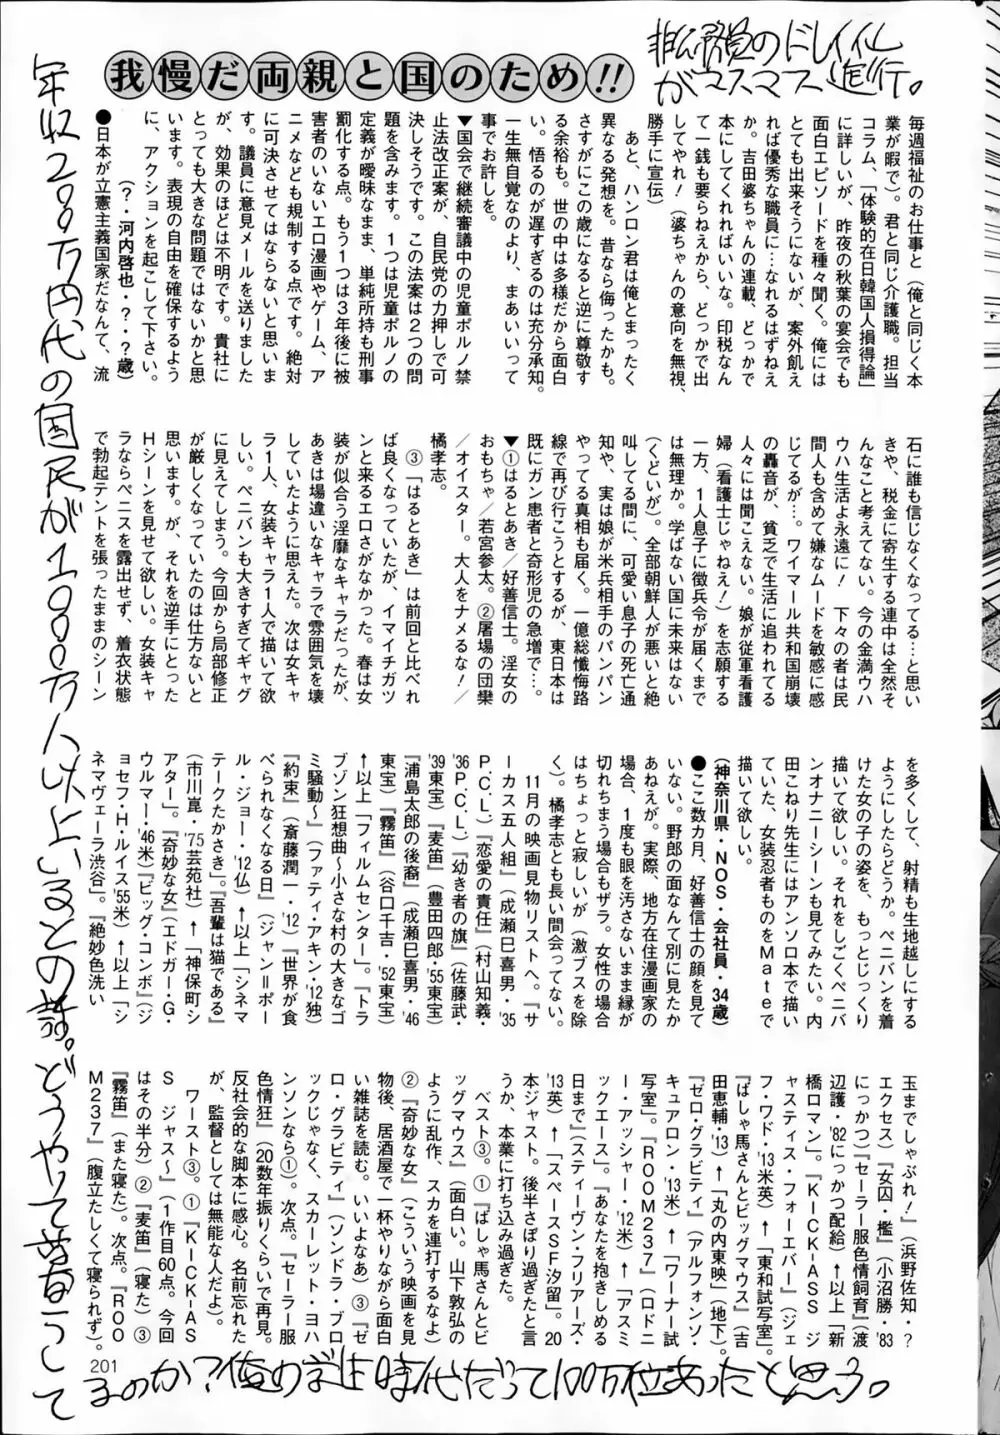 我慢だ両親と国のため!!
非公務員のドレイ化
がマスマス進行。
毎週福祉のお仕事と(俺と同じく本
業が暇で)。君と同じ介護職。担当
コラム、「体験的在日韓国人損得論」
に詳しいが、昨夜の秋葉の宴会でも
面白エピソードを種々聞く。俺には
とても出来そうにないが、案外飢え
れば優秀な職員に…なれるはずねえ
か。吉田婆ちゃんの連載、どっかで
本にしてくれればいいな。印税なん
て一銭も要らねえから、どっかで出
してやれ!(婆ちゃんの意向を無視、
勝手に宣伝)
あと、ハンロン君は俺とまったく
異なる発想を。昔なら侮ったかも。
さすがにこの歳になると逆に尊敬す
る余裕も。世の中は多様だから面白
い。悟るのが遅すぎるのは充分承知。
一生無自覚なのより、まあいいって
事でお許しを。
▼国会で継続審議中の児童ポルノ禁
止法改正案が、自民党の力押しで可
決しそうです。この法案は2つの問
題を含みます。1つは児童ポルノの
定義が曖昧なまま、単純所持も刑事
罰化する点。もう1つは3年後に被
害者のいないエロ漫画やゲーム、ア
ニメなども規制する点です。絶対
に可決させてはならないと思いま
す。議員に意見メールを送りました
が、効果のほどは不明です。貴社に
とっても大きな問題ではないかと思
います。表現の自由を確保するよう
に、アクションを起こして下さい。
(?・河内啓也・?・?歳)
●日本が立憲主義国家だなんて、流
石に誰も信じなくなってる…と思い
きや、税金に寄生する連中は全然そ
んなこと考えてない。今の金満ウハ
ウハ生活よ永遠に! 下々の者は民
間人も含めて嫌なムードを敏感に感
じてるが…。ワイマール共和国崩壊
の轟音が、貧乏で生活に追われてる
人々には聞こえない。娘が従軍看護
婦(看護士じゃねえ!)を志願する
一方、1人息子に徴兵令が届くまで
は無理か。学ばない国に未来はない
(くどいが)。全部朝鮮人が悪いと絶
叫してる間に、可愛い息子の死亡通
知や、実は娘が米兵相手のパンパン
やってる真相も届く。一億総懺悔路
線で再び行こうとするが、東日本は
既にガン患者と奇形児の急増で…。
▼①はるとあき/好善信士。淫女の
おもちゃ/若宮参太。②屠場の団欒
/オイスター。大人をナメるな!/
橘孝志。
③「はるとあき」は前回と比べれ
ば良くなっていたが、イマイチガツ
ンと来るエロさがなかった。春は女
装が似合う淫靡なキャラだったが、
あきは場違いなキャラで雰囲気を壊
していたように思えた。次は女キャ
ラ1人、女装キャラ1人で描いて欲
しい。ペニバンも大きすぎてギャグ
に見えてしまう。今回から局部修正
が厳しくなっていたのは仕方ないと
思います。が、それを逆手にとった
Hシーンを見せて欲しい。女装キャ
ラならペニスを露出せず、着衣状態
で勃起テントを張ったままのシーン
を多くして、射精も生地越しにする
ようにしたらどうか。ペニバンを着
けた女の子の姿を、もっとじっくり
描いて欲しい。それをしごくペニバ
ンオナニーシーンも見てみたい。内
田こねり先生にはアンソロ本で描い
ていた、女装忍者ものをMateで
描いて欲しい。
(神奈川県・NOS・会社員・34歳)
●ここ数カ月、好善信士の顔を見て
いない。野郎の面なんて別に見たか
あねえが。実際、地方在住漫画家の
場合、1度も眼を汚さないまま縁が
切れちまう場合もザラ。女性の場合
はちょっと寂しいが(激ブスを除
く)。橘孝志とも長い間会ってない。
11月の映画見物リストへ。『サ
ーカス五人組』(成瀬巳喜男・'35
P.C.L)。『恋愛の責任』(村山知義・
'36P.C.L)。『幼き者の旗』(佐藤武・
'39東宝)『麦笛』(豊田四郎・'55東宝)
『浦島太郎の後裔』(成瀬巳喜男・'46
東宝)『霧笛』(谷口千吉・'52東宝)
↑以上「フィルムセンター」。『トラ
ブゾン狂想曲〜小さな村の大きなゴ
ミ騒動〜』(ファティ・アキン・'12独)
『約束』(斎藤潤一・'12)『世界が食
べられなくなる日』(ジャン=ポー
ル・ジョー・'12仏)↑以上「シネマ
テークたかさき」。『吾輩は猫である』
(市川崑・'75芸苑社)↑「神保町シ
アター」。『奇妙な女』(エドガー・G・
ウルマー・'46米)『ビッグ・コンボ』(ジ
ョセフ・H・ルイス'55米)↑以上「シ
ネマヴェーラ渋谷」。『絶妙色洗い
玉までしゃぶれ!』(浜野佐知・?
エクセス)『女囚・檻』(小沼勝・'83
にっかつ)『セーラー服色情飼育』(渡
辺護・'82にっかつ配給)↑以上「新
橋ロマン」。『KICK-ASS ジ
ャスティス・フォーエバー』(ジェ
フ・ワド・'13米英)↑「東和試写室」。
『ばしゃ馬さんとビッグマウス』(吉
田恵輔・'13)↑「丸の内東映」(地下)。
『ゼロ・グラビティ』(アルフォンソ・
キュアロン・'13米)↑「ワーナー試
写室」。『ROOM237』(ロドニ
ー・アッシャー・'12米)↑「アスミ
ックエース」。『あなたを抱きしめる
日まで』(スティーヴン・フリアーズ・
'13英)↑「スペースSF汐留」。20
本ジャスト。後半さぼり過ぎたと言
うか、本業に打ち込み過ぎた。
ベスト③。①『ばしゃ馬さんとビ
ッグマウス』(面白い。山下敦弘の
ように乱作、スカを連打するなよ)
②『奇妙な女』(こういう映画を見
物後、居酒屋で一杯やりながら面白
い雑誌を読む。いいよなあ)③『ゼ
ロ・グラビティ』(ソンドラ・ブロ
ックじゃなく、スカーレット・ヨハ
ンソンなら①)。次点。『セーラー服
色情狂』(20数年振りくらいで再見。
反社会的な脚本に感心。名前忘れた
が、監督としては無能な人だよ)。
ワースト③。①『KICK-AS
S ジャス〜』(1作目60点。今回
はその半分)②『麦笛』(寝た)③
『霧笛』(また寝た)。次点。『ROO
M237』(腹立たしくて寝られず)。
201
年収200万円代の国民が1000万人以上いるとの話。どうやって暮らして
るのか?俺の学生時代だって100万位あったと思う。